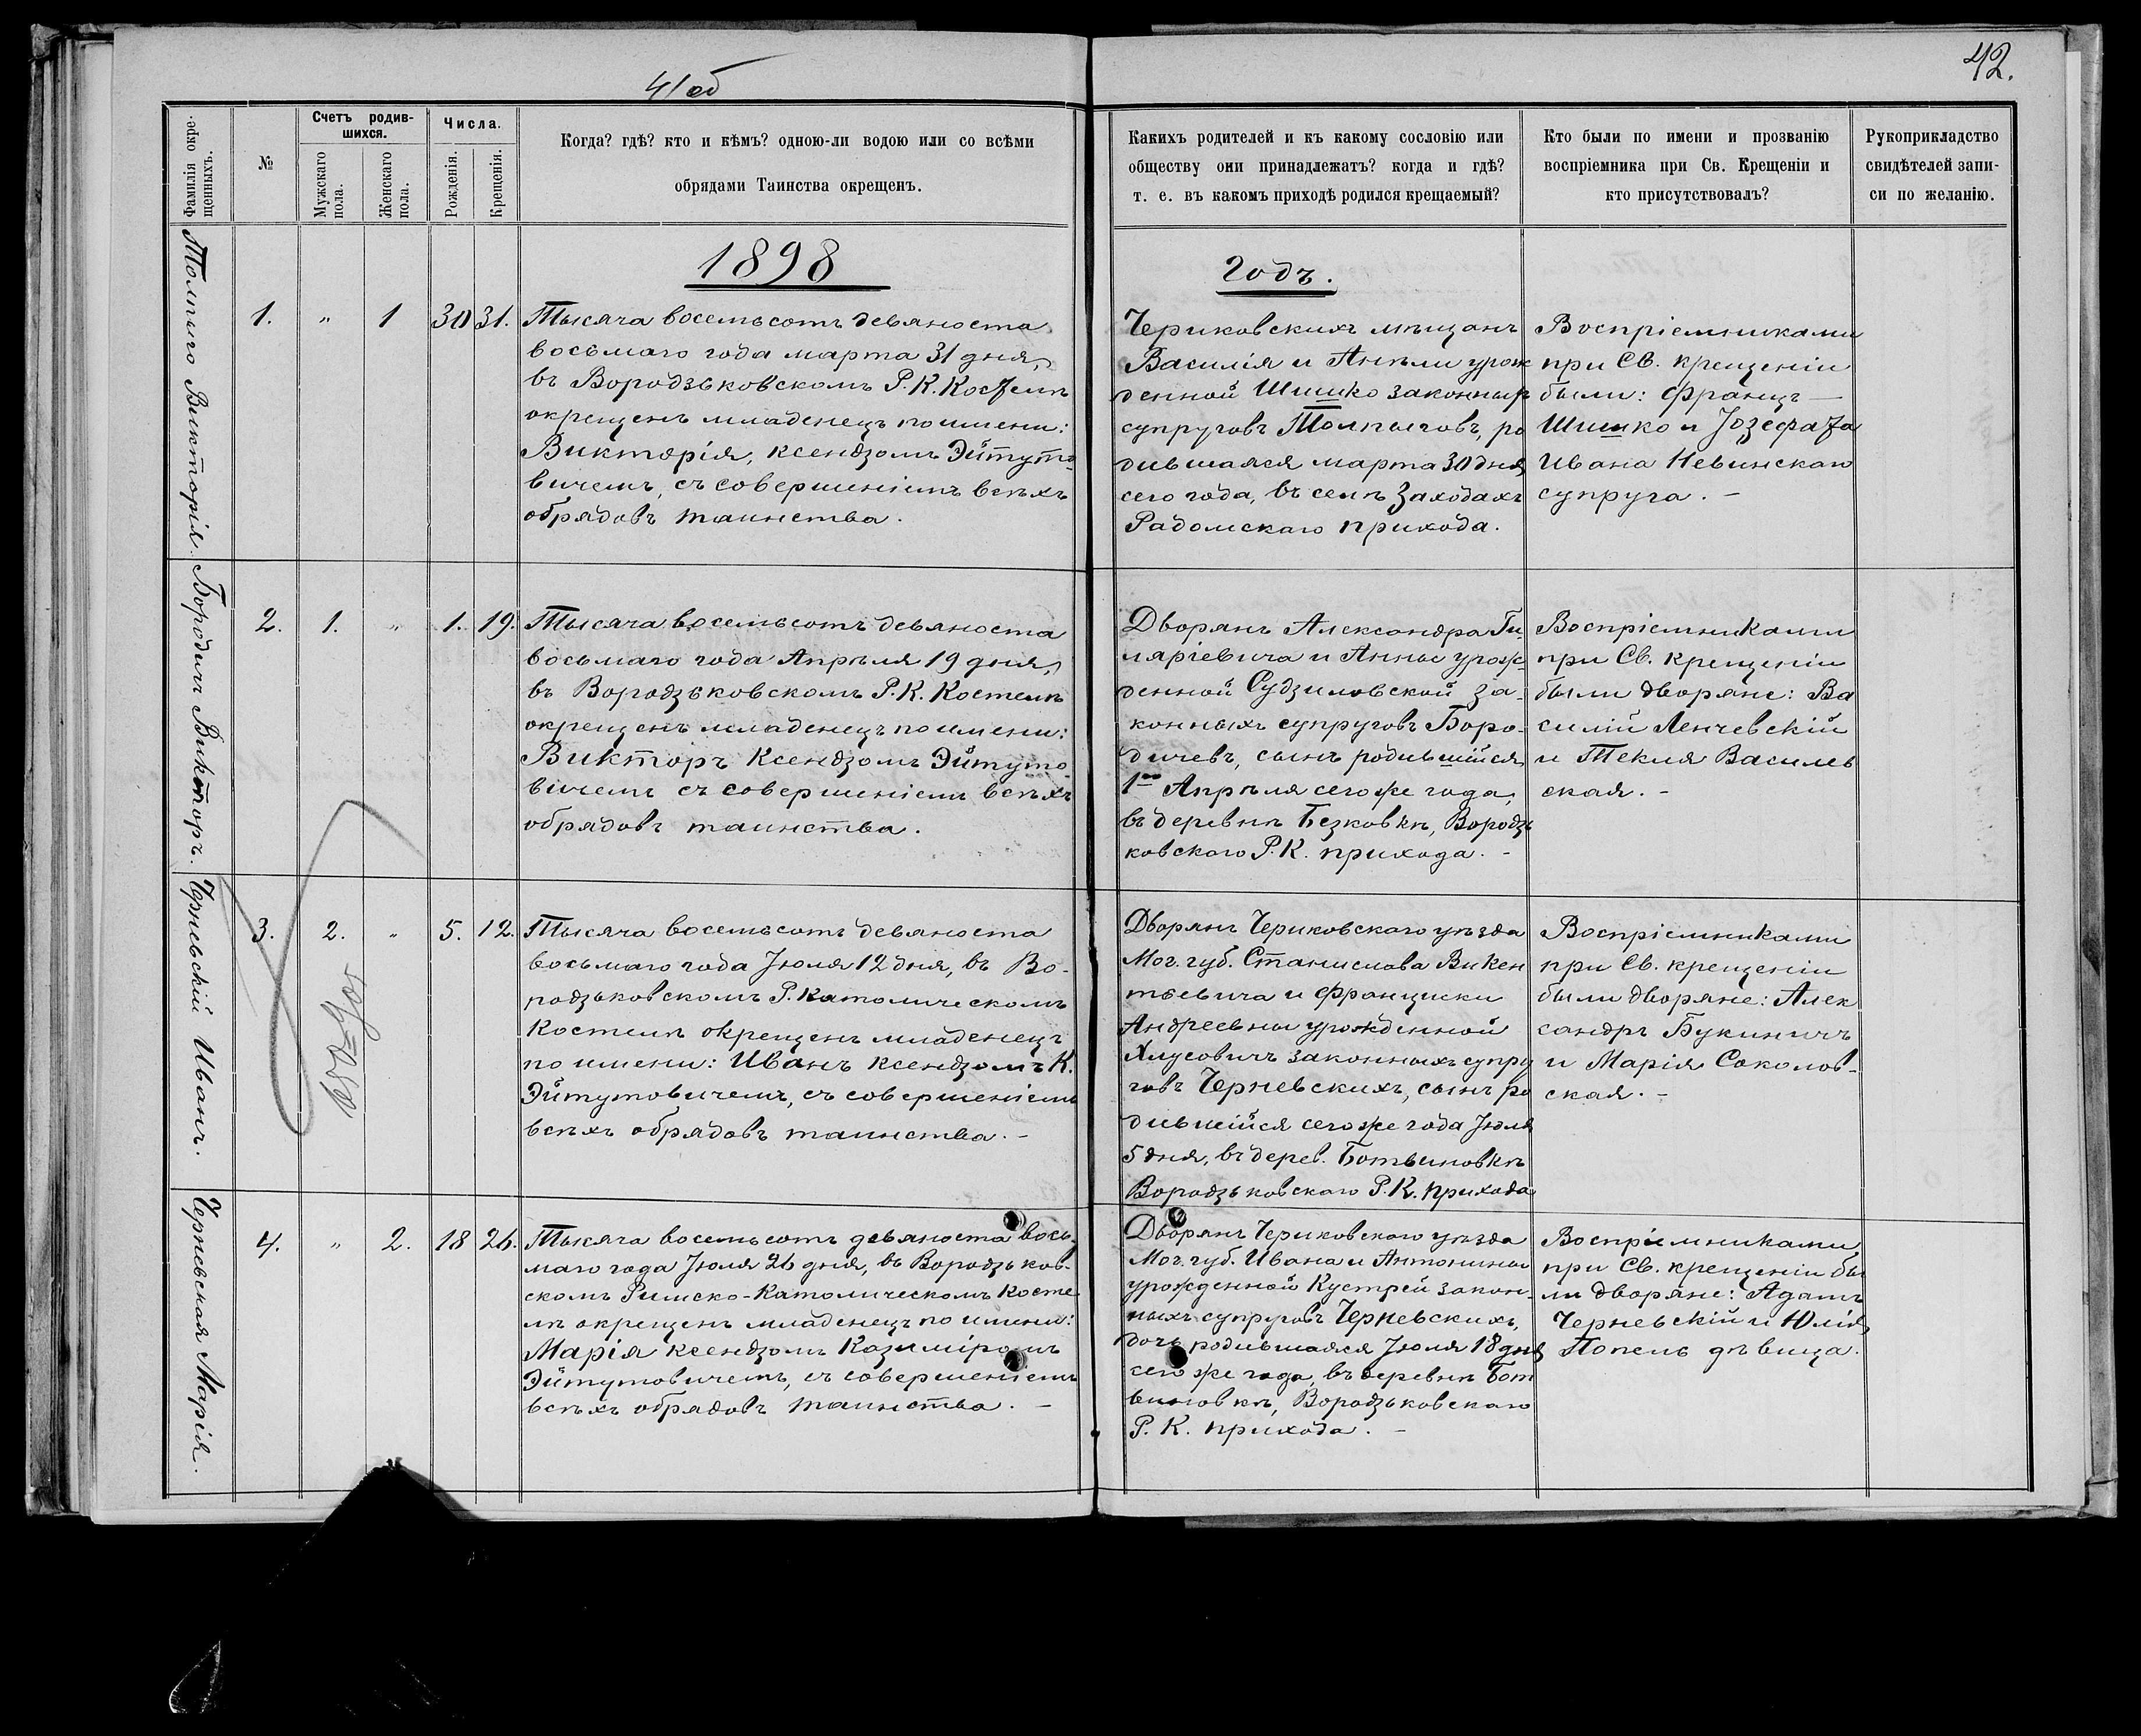 41об
42.
Фамилія окре-
щенныхъ.
№
Счетъ родив-
шихся.
Мужскаго
пола.
Женскаго
пола.
Числа.
Рожденія.
Крещенія.
Когда? гдѣ? кто и кѣмъ? одною-ли водою или со всѣми
обрядами Таинства окрещенъ.
Какихъ родителей и къ какому сословію или
обществу они принадлежатъ? когда и гдѣ?
т. е. въ какомъ приходѣ родился крещаемый?
Кто были по имени и прозванію
воспріемника при Св. Крещеніи и
кто присутствовалъ?
Рукоприкладство
свидѣтелей запи-
си по желанію.
1898
годъ.
Толпыго Викторія.
1.
"
1
30
31.
Тысяча восемьсотъ девяноста
восьмаго года марта 31 дня,
въ Вородзьковскомъ Р. К. Костелѣ
окрещенъ младенецъ по имени:
Викторія, ксендзомъ Эйтуто-
вичемъ, съ совершеніемъ всѣхъ
обрядовъ таинства.
Чериковскихъ мѣщанъ
Василія и Анѣли урож
денной Шишко законных
супруговъ Толпыговъ, ро
дившаяся марта 30 дня
сего года, въ селѣ Заходахъ
Радомскаго прихода.
Воспріемниками
при Св. крещеніи
были: Францъ —
Шишко и Іозефата
Ивана Невинскаго
супруга. –
Бородичъ Викторъ.
2.
1.
"
1.
19.
Тысяча восемьсотъ девяноста
восьмаго года Апрѣля 19 дня,
въ Вородзьковскомъ Р. К. Костелѣ
окрещенъ младенецъ по имени:
Викторъ Ксендзомъ Эйтуто-
вичемъ съ совершеніемъ всѣхъ
обрядовъ таинства.
Дворянъ Александра Ги-
ляріевича и Анны урож-
денной Судзиловской за-
конныхъ супруговъ Боро-
дичевъ, сынъ родившійся
1го Апрѣля сего же года,
въ деревнѣ Безковкѣ, Вородзь
ковскаго Р. К. прихода. –
Воспріемниками
при Св. крещеніи
были дворяне: Ва
силій Ленчевскій
и Текля Василев
ская. –
Черневскій Иванъ.
3.
2.
"
5.
12.
Тысяча восемьсотъ девяноста
восьмаго года Іюля 12 дня, въ Во-
родзьковскомъ Р. Католическомъ
Костелѣ окрещенъ младенецъ
по имени: Иванъ ксендзомъ К.
Эйтутовичемъ, съ совершеніемъ
всѣхъ обрядовъ таинства. –
Дворянъ Чериковскаго уѣзда
Мог. губ. Станислава Викен
тьевича и Франциски
Андреевны урожденной
Хлусовичъ законныхъ супру
говъ Черневскихъ, сынъ ро
дившійся сего же года Іюля
5 дня, въ дерев. Ботвиновкѣ
Вородзьковскаго Р. К. прихода
Воспріемниками
при Св. крещеніи
были дворяне: Алек
сандръ Букиничъ
и Марія Соколов-
ская. –
Черневская Марія.
4.
"
2.
18
26.
Тысяча восемьсотъ девяноста вось-
маго года Іюля 26 дня, въ Вородзьков-
скомъ Римско-Католическомъ Косте
лѣ окрещенъ младенецъ по имени:
Марія ксендзомъ Казиміромъ
Эйтутовичемъ, съ совершеніемъ
всѣхъ обрядовъ таинства. –
Дворянъ Чериковскаго уѣзда
Мог. губ. Ивана и Антонины
урожденной Кустрей закон-
ныхъ супруговъ Черневскихъ,
дочь родившаяся Іюля 18 дня
сего же года, въ деревнѣ Бот
виновкѣ, Вородзьковскаго
Р. К. прихода. –
Воспріемниками
при Св. крещеніи бы
ли дворяне: Адамъ
Черневскій и Юлія
Попель дѣвица.